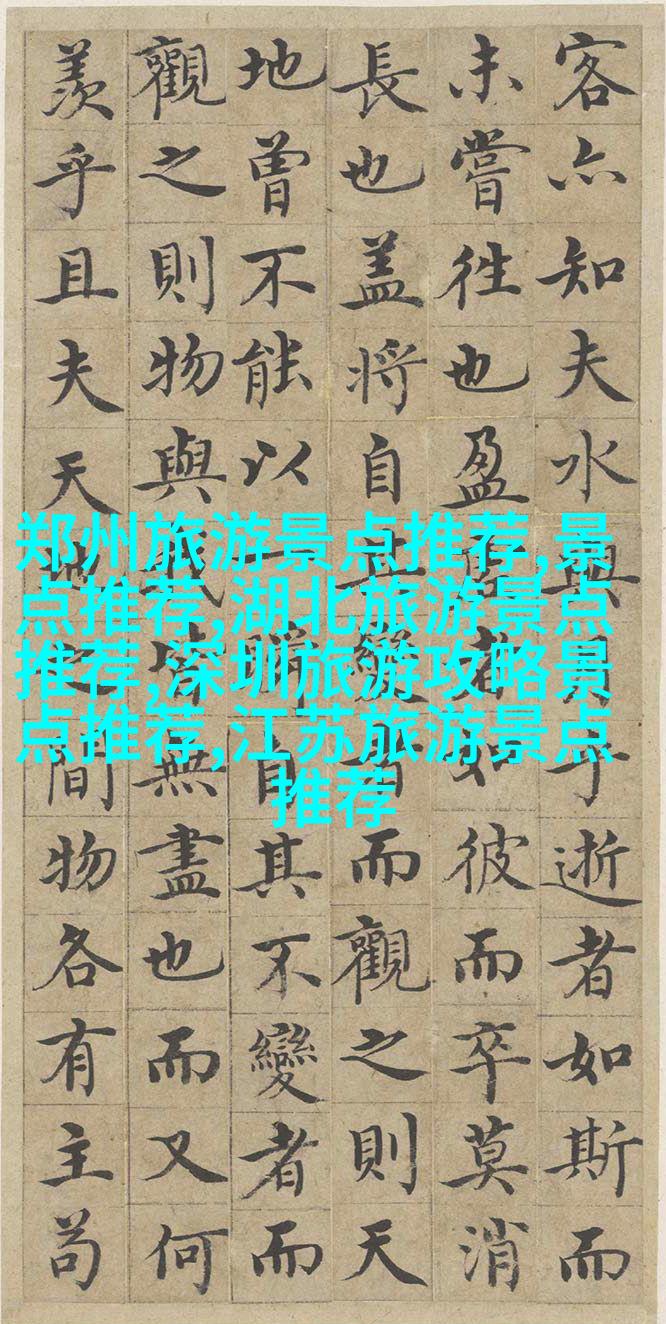 客亦知夫水與月乎逝者如斯而
未嘗往也盈虛者如彼而卒莫消
長也盖将自其變者而觀之則天
地曾不能以一瞬自其不變者而
觀之則物與我皆無盡也而又何
羨乎且夫天地之間物各有主苟
郑州旅游景点推荐,景
点推荐,湖北旅游景点
推荐,深圳旅游攻略景
点推荐,江苏旅游景点
推荐